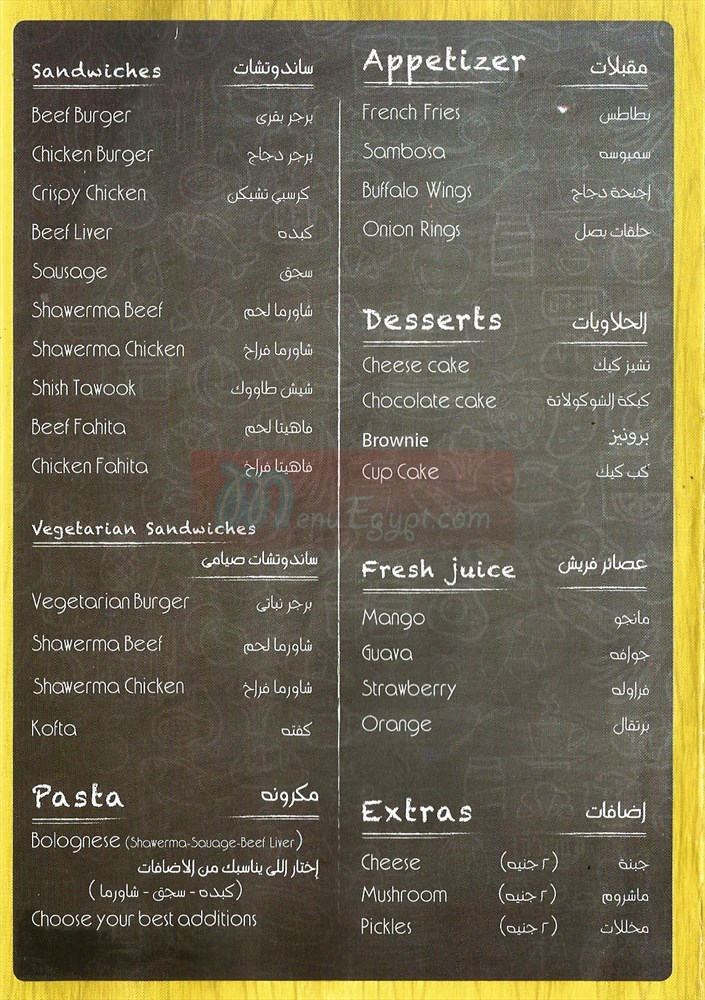 Sandwiches ساندوتشات
Beef Burger برجر بقرى
Chicken Burger برجر دجاج
Crispy Chicken كرسبي تشيكن
Beef Liver كبده
Sausage سجق
Shawerma Beef شاورما لحم
Shawerma Chicken شاورما فراخ
Shish Tawook شيش طاووك
Beef Fahita فاهيتا لحم
Chicken Fahita فاهيتا فراخ
Vegetarian Sandwiches
ساندوتشات صيامى
Vegetarian Burger برجر نباتى
Shawerma Beef شاورما لحم
Shawerma Chicken شاورما فراخ
Kofta كفته
Pasta مكرونه
Bolognese (Shawerma-Sauage-Beef Liver)
إختار اللى يناسبك من الاضافات
(كبده - سجق - شاورما)
Choose your best additions
Appetizer مقبلات
French Fries بطاطس
Sambosa سمبوسه
Buffalo Wings إجنحة دجاج
Onion Rings حلقات بصل
Desserts الحلاويات
Cheese cake تشيز كيك
Chocolate cake كيكة الشوكولاتة
Brownie برونيز
Cup Cake كب كيك
MenuEgypt.com
Fresh juice عصائر فريش
Mango مانجو
Guava جوافه
Strawberry فراوله
Orange برتقال
Extras إضافات
Cheese (٢ جنيه) جبنة
Mushroom (٢ جنيه) ماشروم
Pickles (٢ جنيه) مخللات